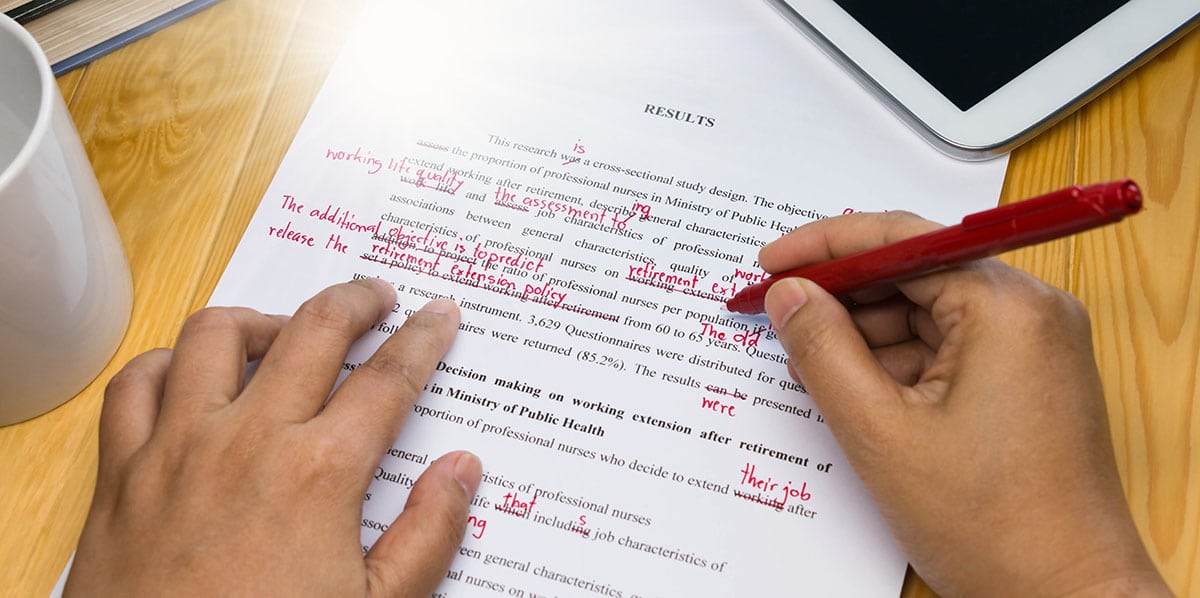 RESULTS
is
This research was a cross-sectional study design. The objective
assess the proportion of professional nurses in Ministry of Public Heal
working life quality
extend working after retirement, describe general characteristics
ing
work life and assess job characteristics of professional
the assessment to
associations between general characteristics, quality of
work
characteristics of professional nurses on working extensi
retirement ext
The additional objective is to predict
addition, to project the ratio of professional nurses per population
release the retirement extension policy
set a policy to extend working after retirement from 60 to 65 years. Questi
The old
a research instrument. 3,629 Questionnaires were distributed for ques
aires were returned (85.2%). The results can be presented
were
follo
Decision making on working extension after retirement of
in Ministry of Public Health
roportion of professional nurses who decide to extend working after
their job
general characteristics of professional nurses
Quality life which including job characteristics of
that
s
ng
een general characteristics
nal nurses on